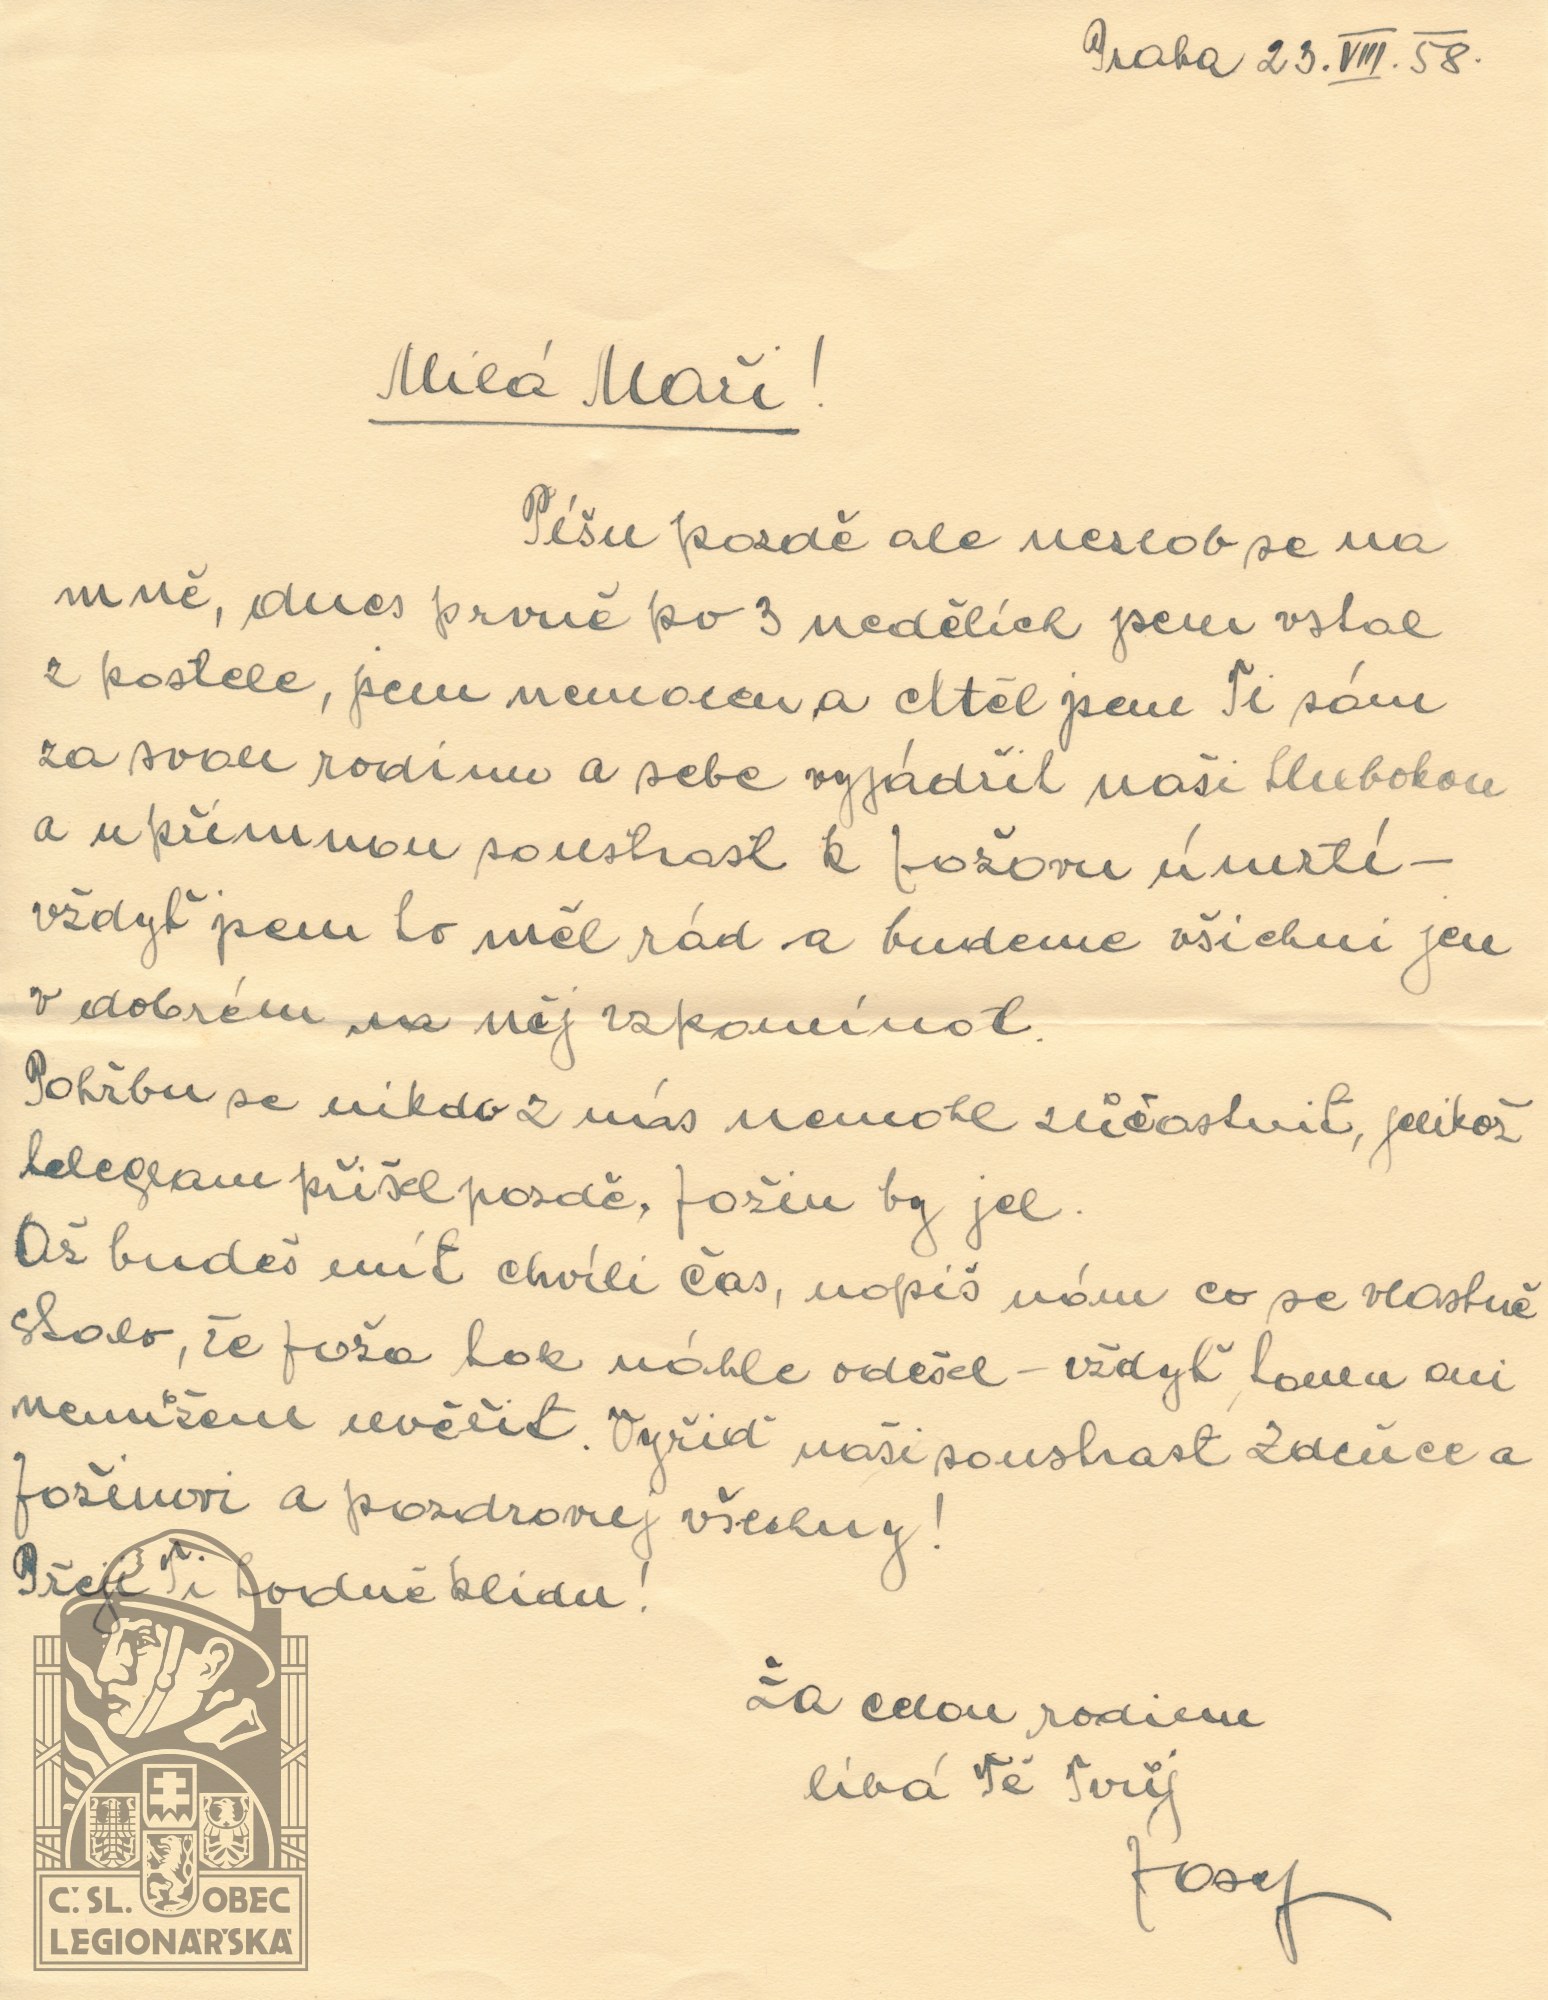 Praha 23. VIII. 58.
Milá Maři!
Píšu pozdě ale nezlob se na
mně, dnes prvně po 3 nedělích jsem vstal
z postele, jsem nemocen a chtěl jsem Ti sám
za svou rodinu a sebe vyjádřit naši hlubokou
a upřímnou soustrast k Jožovu úmrtí –
vždyť jsem ho měl rád a budeme všichni jen
v dobrém na něj vzpomínat.
Pohřbu se nikdo z nás nemohl zůčastnit, jelikož
telegram přišel pozdě, Jožin by jel.
Až budeš mít chvíli čas, napiš nám co se vlastně
stalo, že Joža tak náhle odešel – vždyť tomu ani
nemůžem uvěřit. Vyřiď naši soustrast Zdeňce a
Jožinovi a pozdravuj všechny!
Přeji Ti hodně klidu!
Za celou rodinu
líbá Tě Tvůj
Josef
Č.SL. OBEC
LEGIONÁŘSKÁ